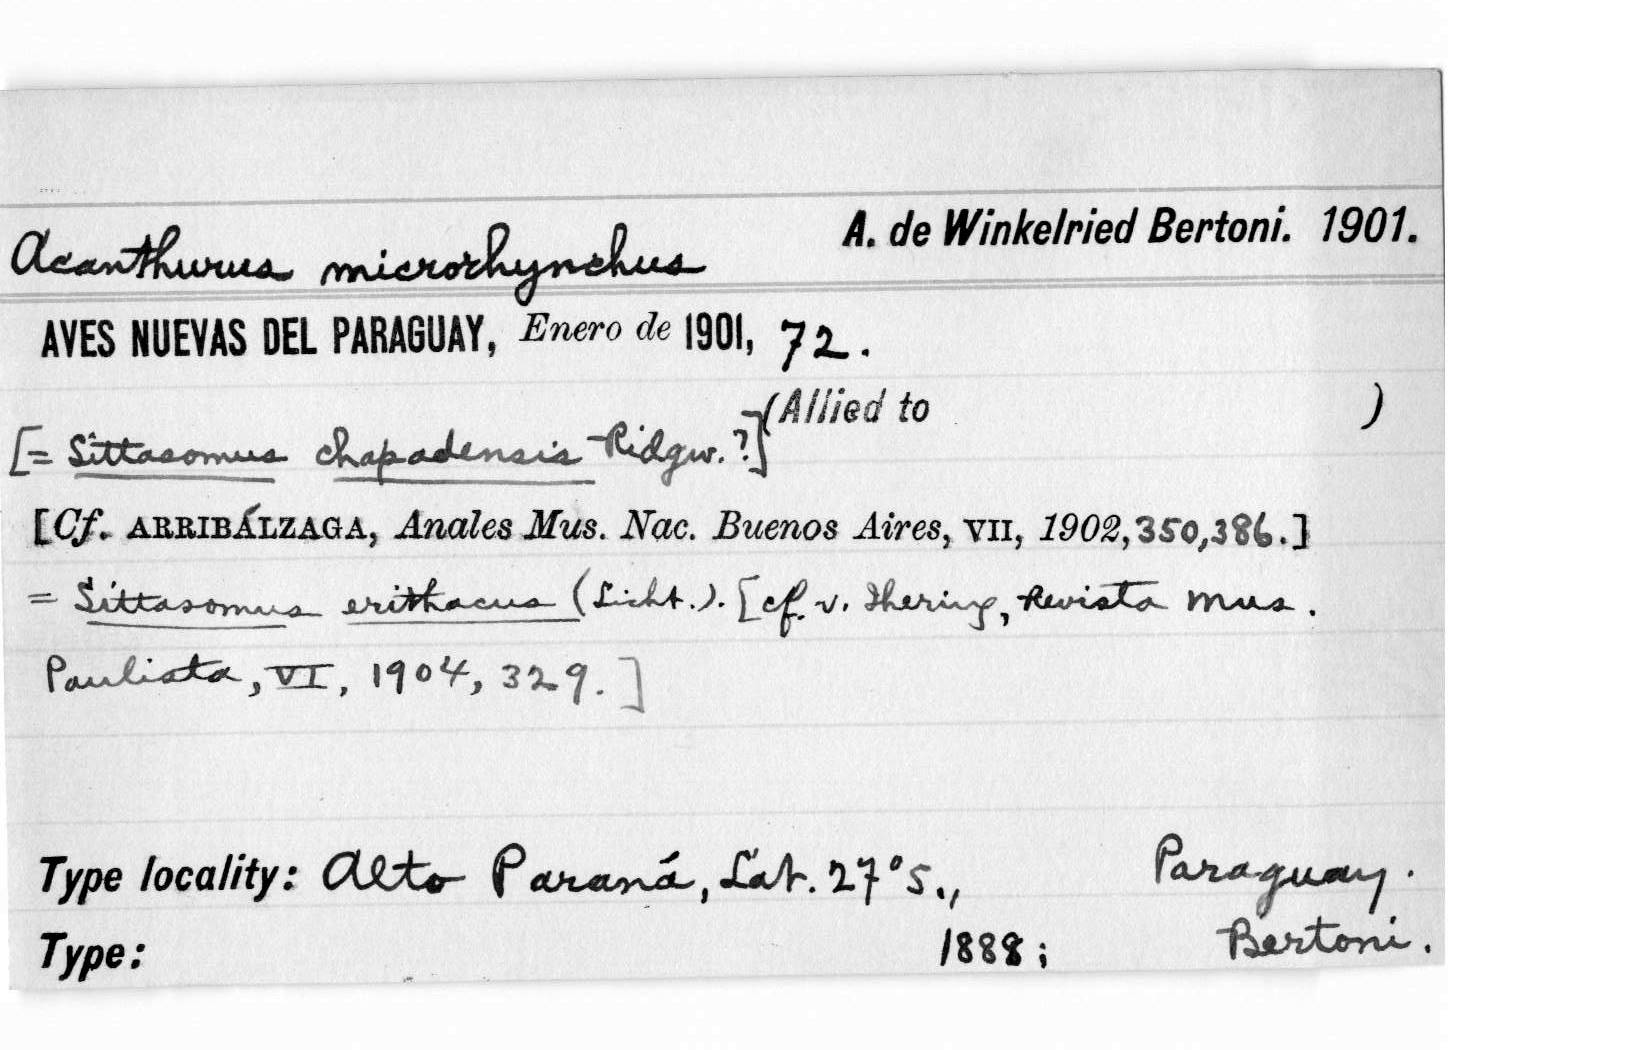 Acanthurus microrhynchus A. de Winkelried Bertoni. 1901.
AVES NUEVAS DEL PARAGUAY, Enero de 1901, 72.
(Allied to )
[= Sittasomus chapadensis Ridgw.?]
[Cf. ARRIBÁLZAGA, Anales Mus. Nac. Buenos Aires, VII, 1902, 350, 386.]
= Sittasomus erithacus (Licht.). [cf. v. Ihering, Revista Mus.
Paulista, VI, 1904, 329.]
Type locality: Alto Paraná, Lat. 27° S., Paraguay.
Type: 1888; Bertoni.